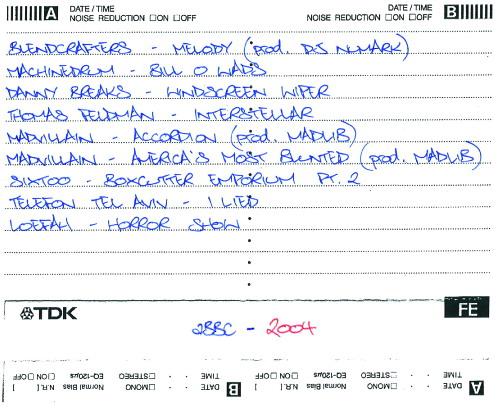 A DATE / TIME NOISE REDUCTION □ON □OFF
DATE / TIME NOISE REDUCTION □ON □OFF B
BLENDCRAFTERS - MELODY (prod. DJ NUMARK)
MACHINEDRUM - BILL O WADS
DANNY BREAKS - WINDSCREEN WIPER
THOMAS FELDMAN - INTERSTELLAR
MADVILLAIN - ACCORDION (prod. MADLIB)
MADVILLAIN - AMERICA'S MOST BLUNTED (prod. MADLIB)
SIXTOO - BOXCUTTER EMPORIUM PT. 2
TELEFON TEL AVIV - I LIED
LOEFAH - HORROR SHOW
TDK
FE
2BBC - 2004
A DATE TIME □MONO □STEREO Normal Bias EQ-120µs N.R.[ ] □ON □OFF
B DATE TIME □MONO □STEREO Normal Bias EQ-120µs N.R.[ ] □ON □OFF